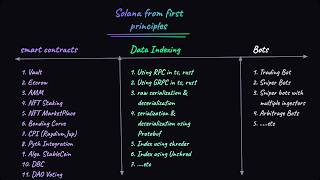 Solana from first
principles
smart contracts
1. Vault
2. Escrow
3. AMM
4. NFT Staking
5. NFT MarketPlace
6. Bonding Curve
7. CPI (Raydium,Jup)
8. Pyth Integration
9. Algo. StableCoin
10. DBC
11. DAO Voting
Data Indexing
1. Using RPC in ts, rust
2. Using GRPC in ts, rust
3. raw serialization &
deserialization
4. serialization &
deserialization using
Protobuf
5. Index using shreder
6. Index using Unshred
7. ....etc
Bots
1. Trading Bot
2. Sniper Bots
3. Sniper bots with
multiple ingestors
4. Arbitrage Bots
5. ....etc